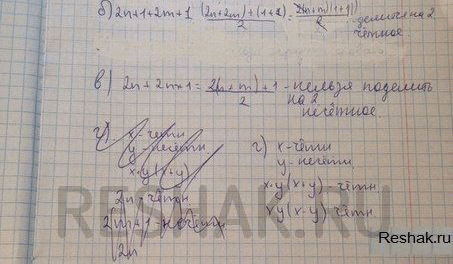 б) 2n+1+2m+1 (2n+2m)+(1+1)/2 = 2(n+m)(1+1)/2 делится на 2
чётное
в) 2n+2m+1 = 2(n+m)+1/2 - нельзя поделить
на 2
несётное.
г) х-четн
у-нечетн
х+у(х+у)
2n-четн
2m+1-нечетн
2n
г) х-чётн
у-нечетн
х+у(х+у)-чётн
ху(х-у) чётн
RESHAK.RU
Reshak.ru